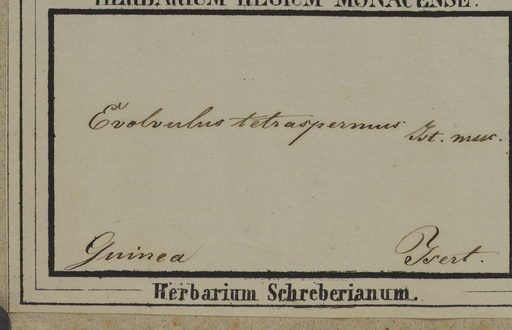 HERBARIUM REGIUM MONACENSE.
Evolvulus tetraspermus Ist. msc.
Guinea Isert.
Herbarium Schreberianum.